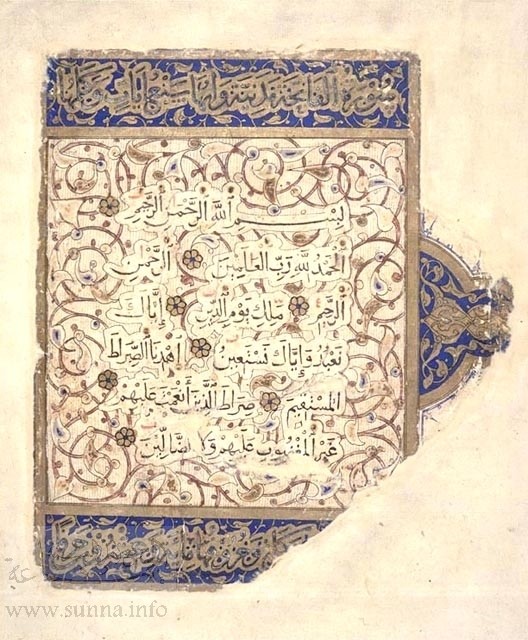 سورة الفاتحة مدنية وانها سبع ايات
بسم الله الرحمن الرحيم
الحمد لله رب العالمين الرحمن
الرحيم ملك يوم الدين إياك
نعبد وإياك نستعين اهدنا الصراط
المستقيم صراط الذين أنعمت عليهم
غير المغضوب عليهم ولا الضالين
www.sunna.info